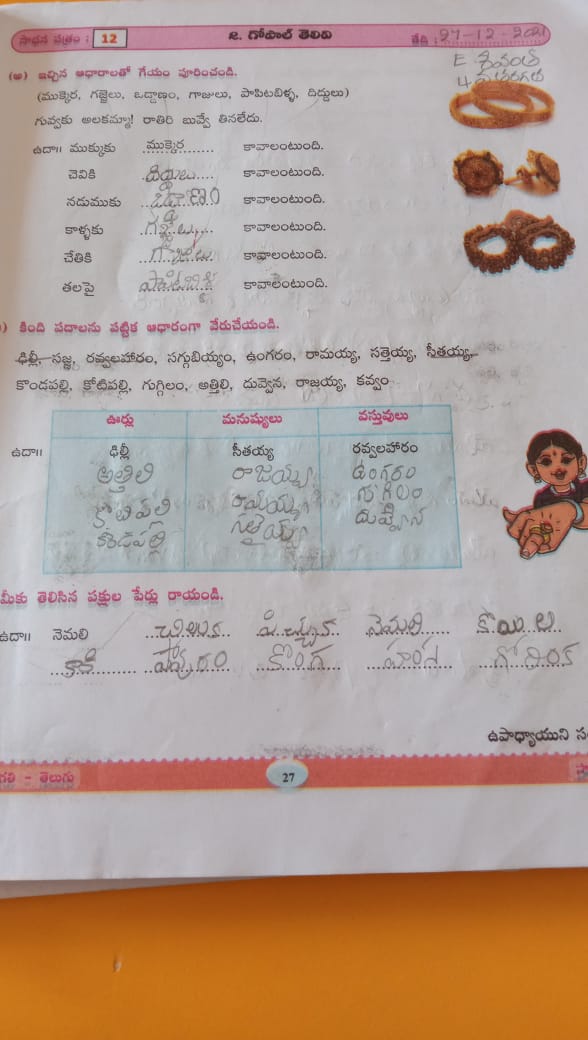 సాధన పత్రం : 12 2. గోపాల్ తెలివి తేది : 27-12-2021
E శివంత
4వ తరగతి
(అ) ఇచ్చిన ఆధారాలతో గేయం పూరించండి.
(ముక్కెర, గజ్జెలు, ఒడ్డాణం, గాజులు, పాపిటబిళ్ళ, దిద్దులు)
గువ్వకు అలకమ్మా! రాతిరి బువ్వే తినలేదు.
ఉదా॥ ముక్కుకు ముక్కెర కావాలంటుంది.
చెవికి దిద్దులు కావాలంటుంది.
నడుముకు ఒడ్డాణం కావాలంటుంది.
కాళ్ళకు గజ్జెలు కావాలంటుంది.
చేతికి గాజులు కావాలంటుంది.
తలపై పాపిటబిళ్ళ కావాలంటుంది.
) కింది పదాలను పట్టిక ఆధారంగా వేరుచేయండి.
ఢిల్లీ, సజ్జ, రవ్వలహారం, సగ్గుబియ్యం, ఉంగరం, రామయ్య, సత్తెయ్య, సీతయ్య,
కొండపల్లి, కోటిపల్లి, గుగ్గిలం, అత్తిలి, దువ్వెన, రాజయ్య, కవ్వం
ఊర్లు మనుష్యులు వస్తువులు
ఉదా॥ ఢిల్లీ సీతయ్య రవ్వలహారం
అత్తిలి రాజయ్య ఉంగరం
కోటిపల్లి రామయ్య గుగిలం
కొండపల్లి సతెయ్య దువ్వెన
మీకు తెలిసిన పక్షుల పేర్లు రాయండి.
ఉదా॥ నెమలి చిలుక పిచ్చుక నెమలి కోయిల
కాకి పావురం కొంగ హంస గోరింక
ఉపాధ్యాయుని స
గతి - తెలుగు 27